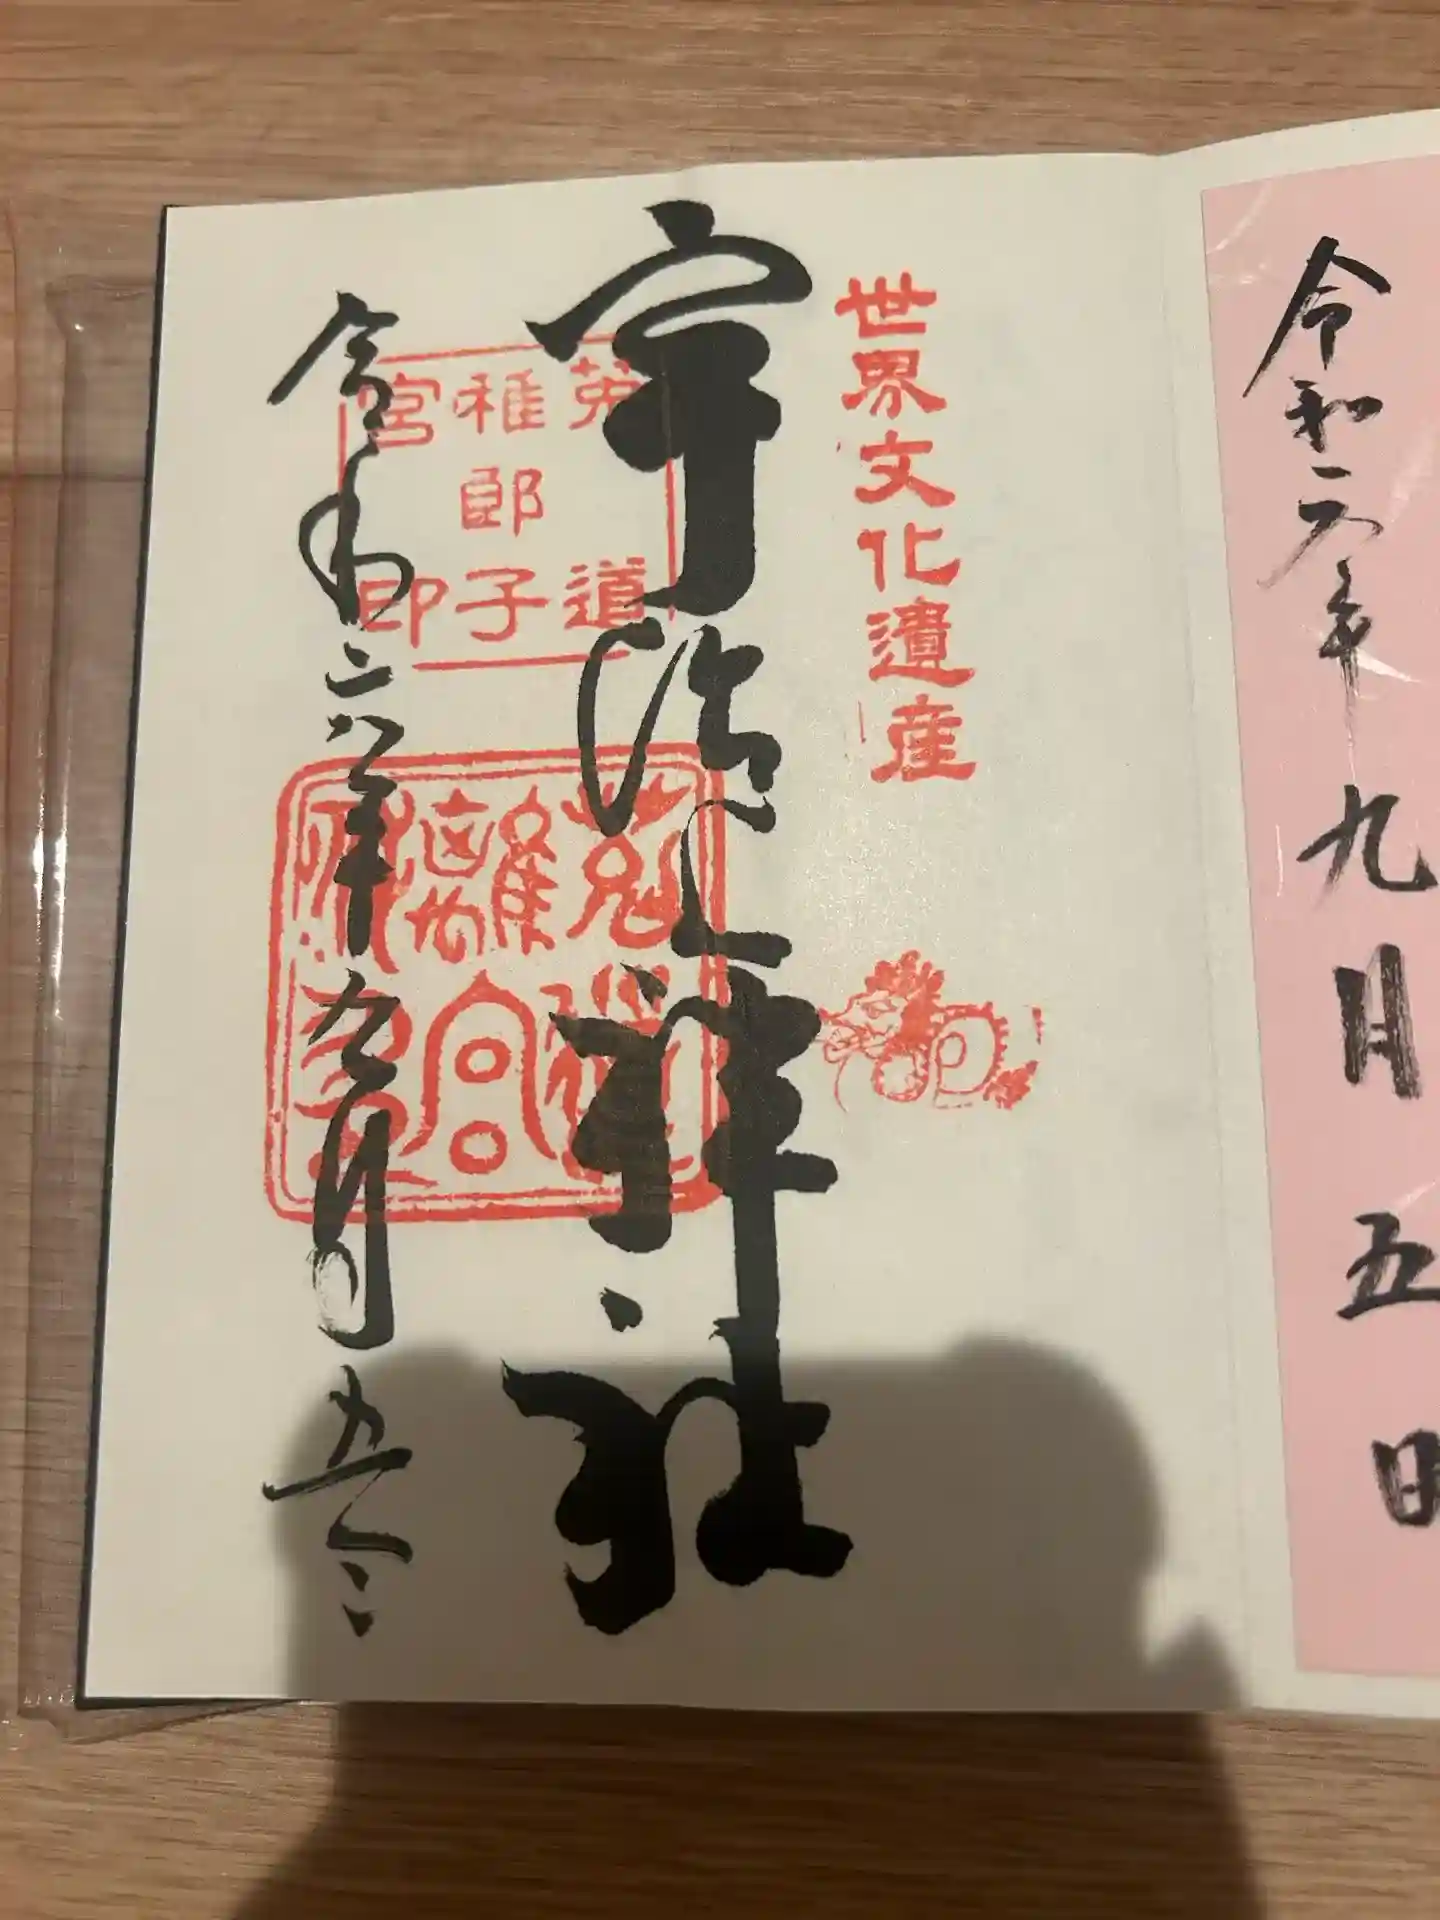 令和六年九月五日
世界文化遺産
宇治上神社
菟道
稚郎子
宮印
令和六年九月五日